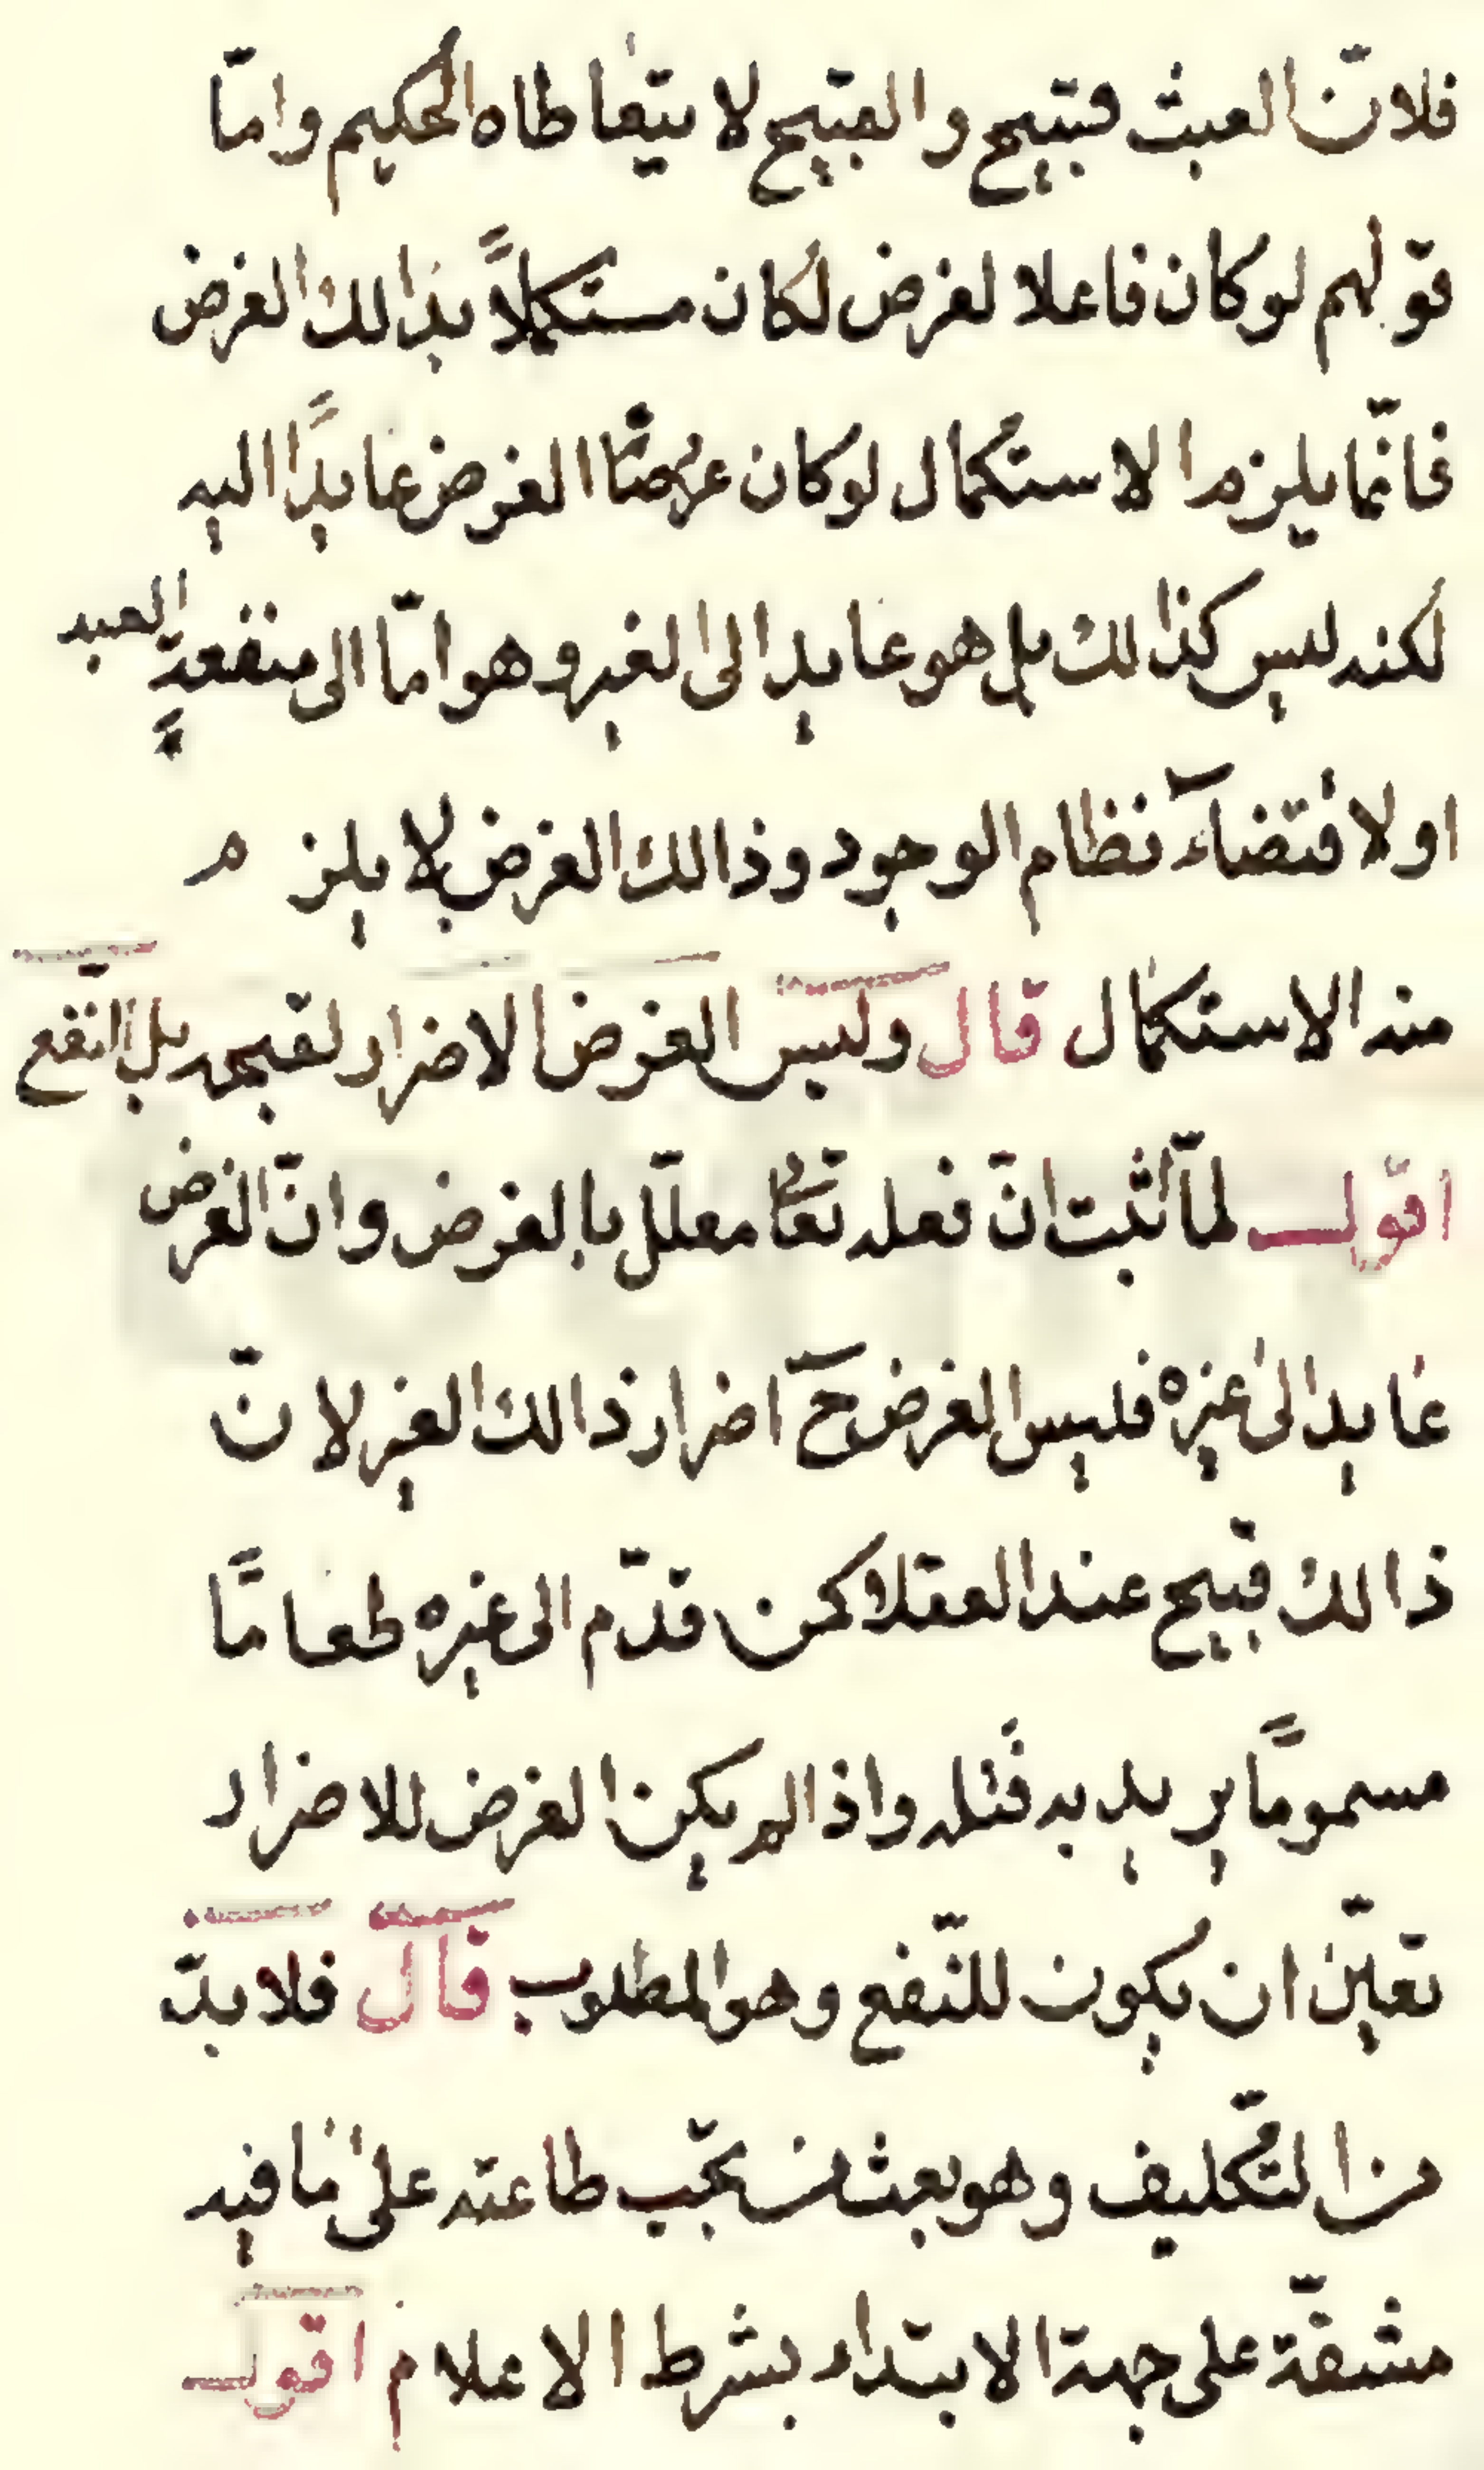 فلانّ العبث قبيح والقبيح لا يتعاطاه الحكيم وامّا
قولهم لو كان فاعلا لغرض لكان مستكملاً بذالك الغرض
فانّما يلزم الاستكمال لو كان الغرض عايدًا اليه
لكنه ليس كذالك بل هو عايد الى الغير وهو امّا الى منفعةٍ العبد
او لاقتضآء نظام الوجود وذالك الغرض لا يلزم
منه الاستكمال قال وليس الغرض الاضرار لقبحه بل النّفع
اقول لمّا ثبت انّ فعله تعا معلّل بالغرض وانّ الغرض
عايد الى غيره فليس الغرض ح اضرار ذالك الغير لانّ
ذالك قبيح عند العقلا كمن قدّم الى غيره طعامًا
مسمومًا يريد به قتله واذا لم يكن الغرض للاضرار
تعيّن ان يكون للنّفع وهو المطلوب قال فلا بدّ
من التّكليف وهو بعث من يجب طاعته على ما فيه
مشقّة على جهة الابتداء بشرط الاعلام اقول